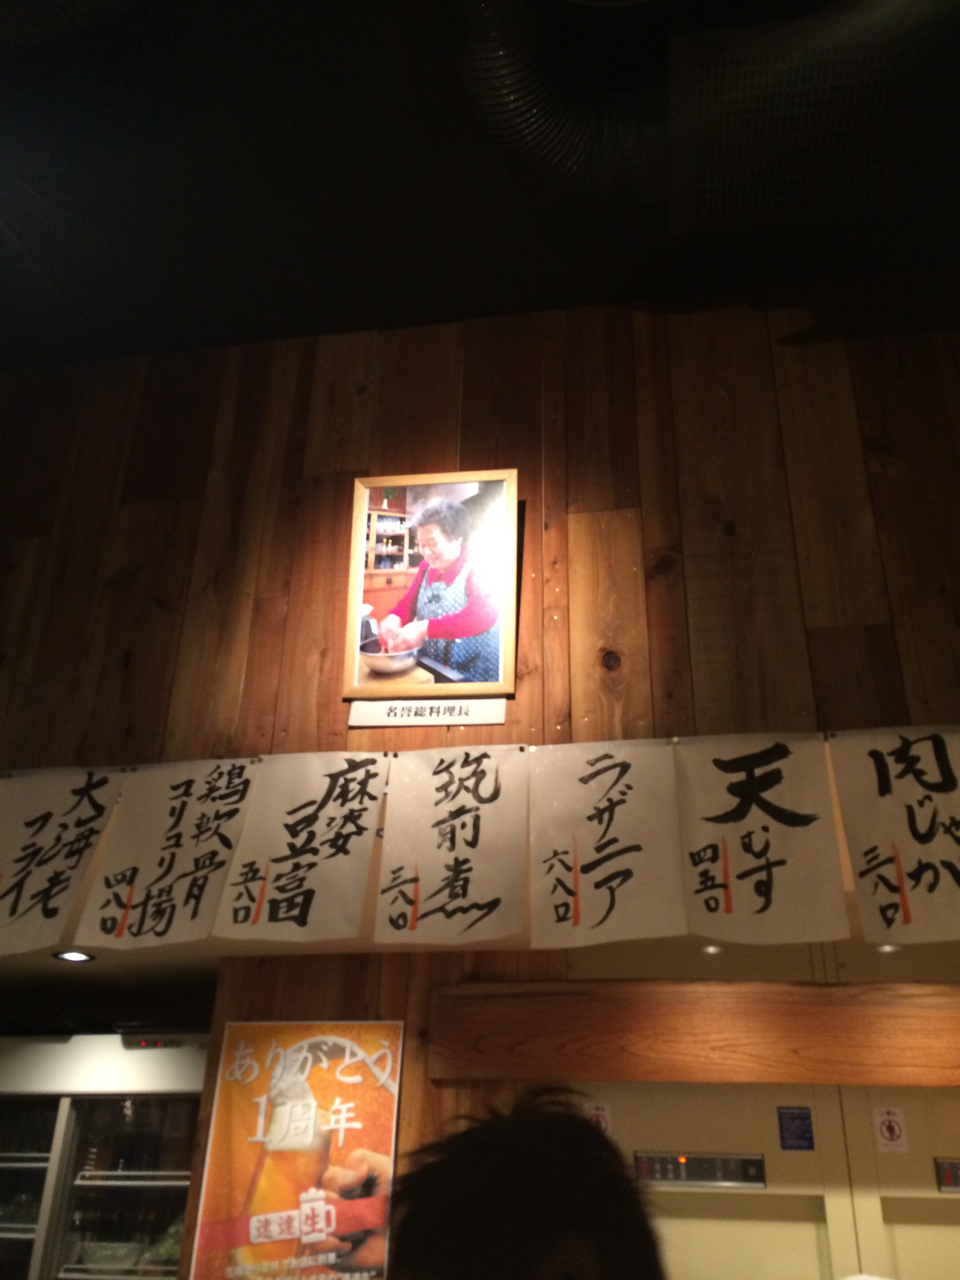 名誉総料理長
肉じゃが
三八〇
天むす
四五〇
ラザニア
六八〇
筑前煮
三八〇
麻婆
豆富
五八〇
鶏軟骨
コリコリ揚
四八〇
大海老
フライ
ありがとう
1周年
速達生